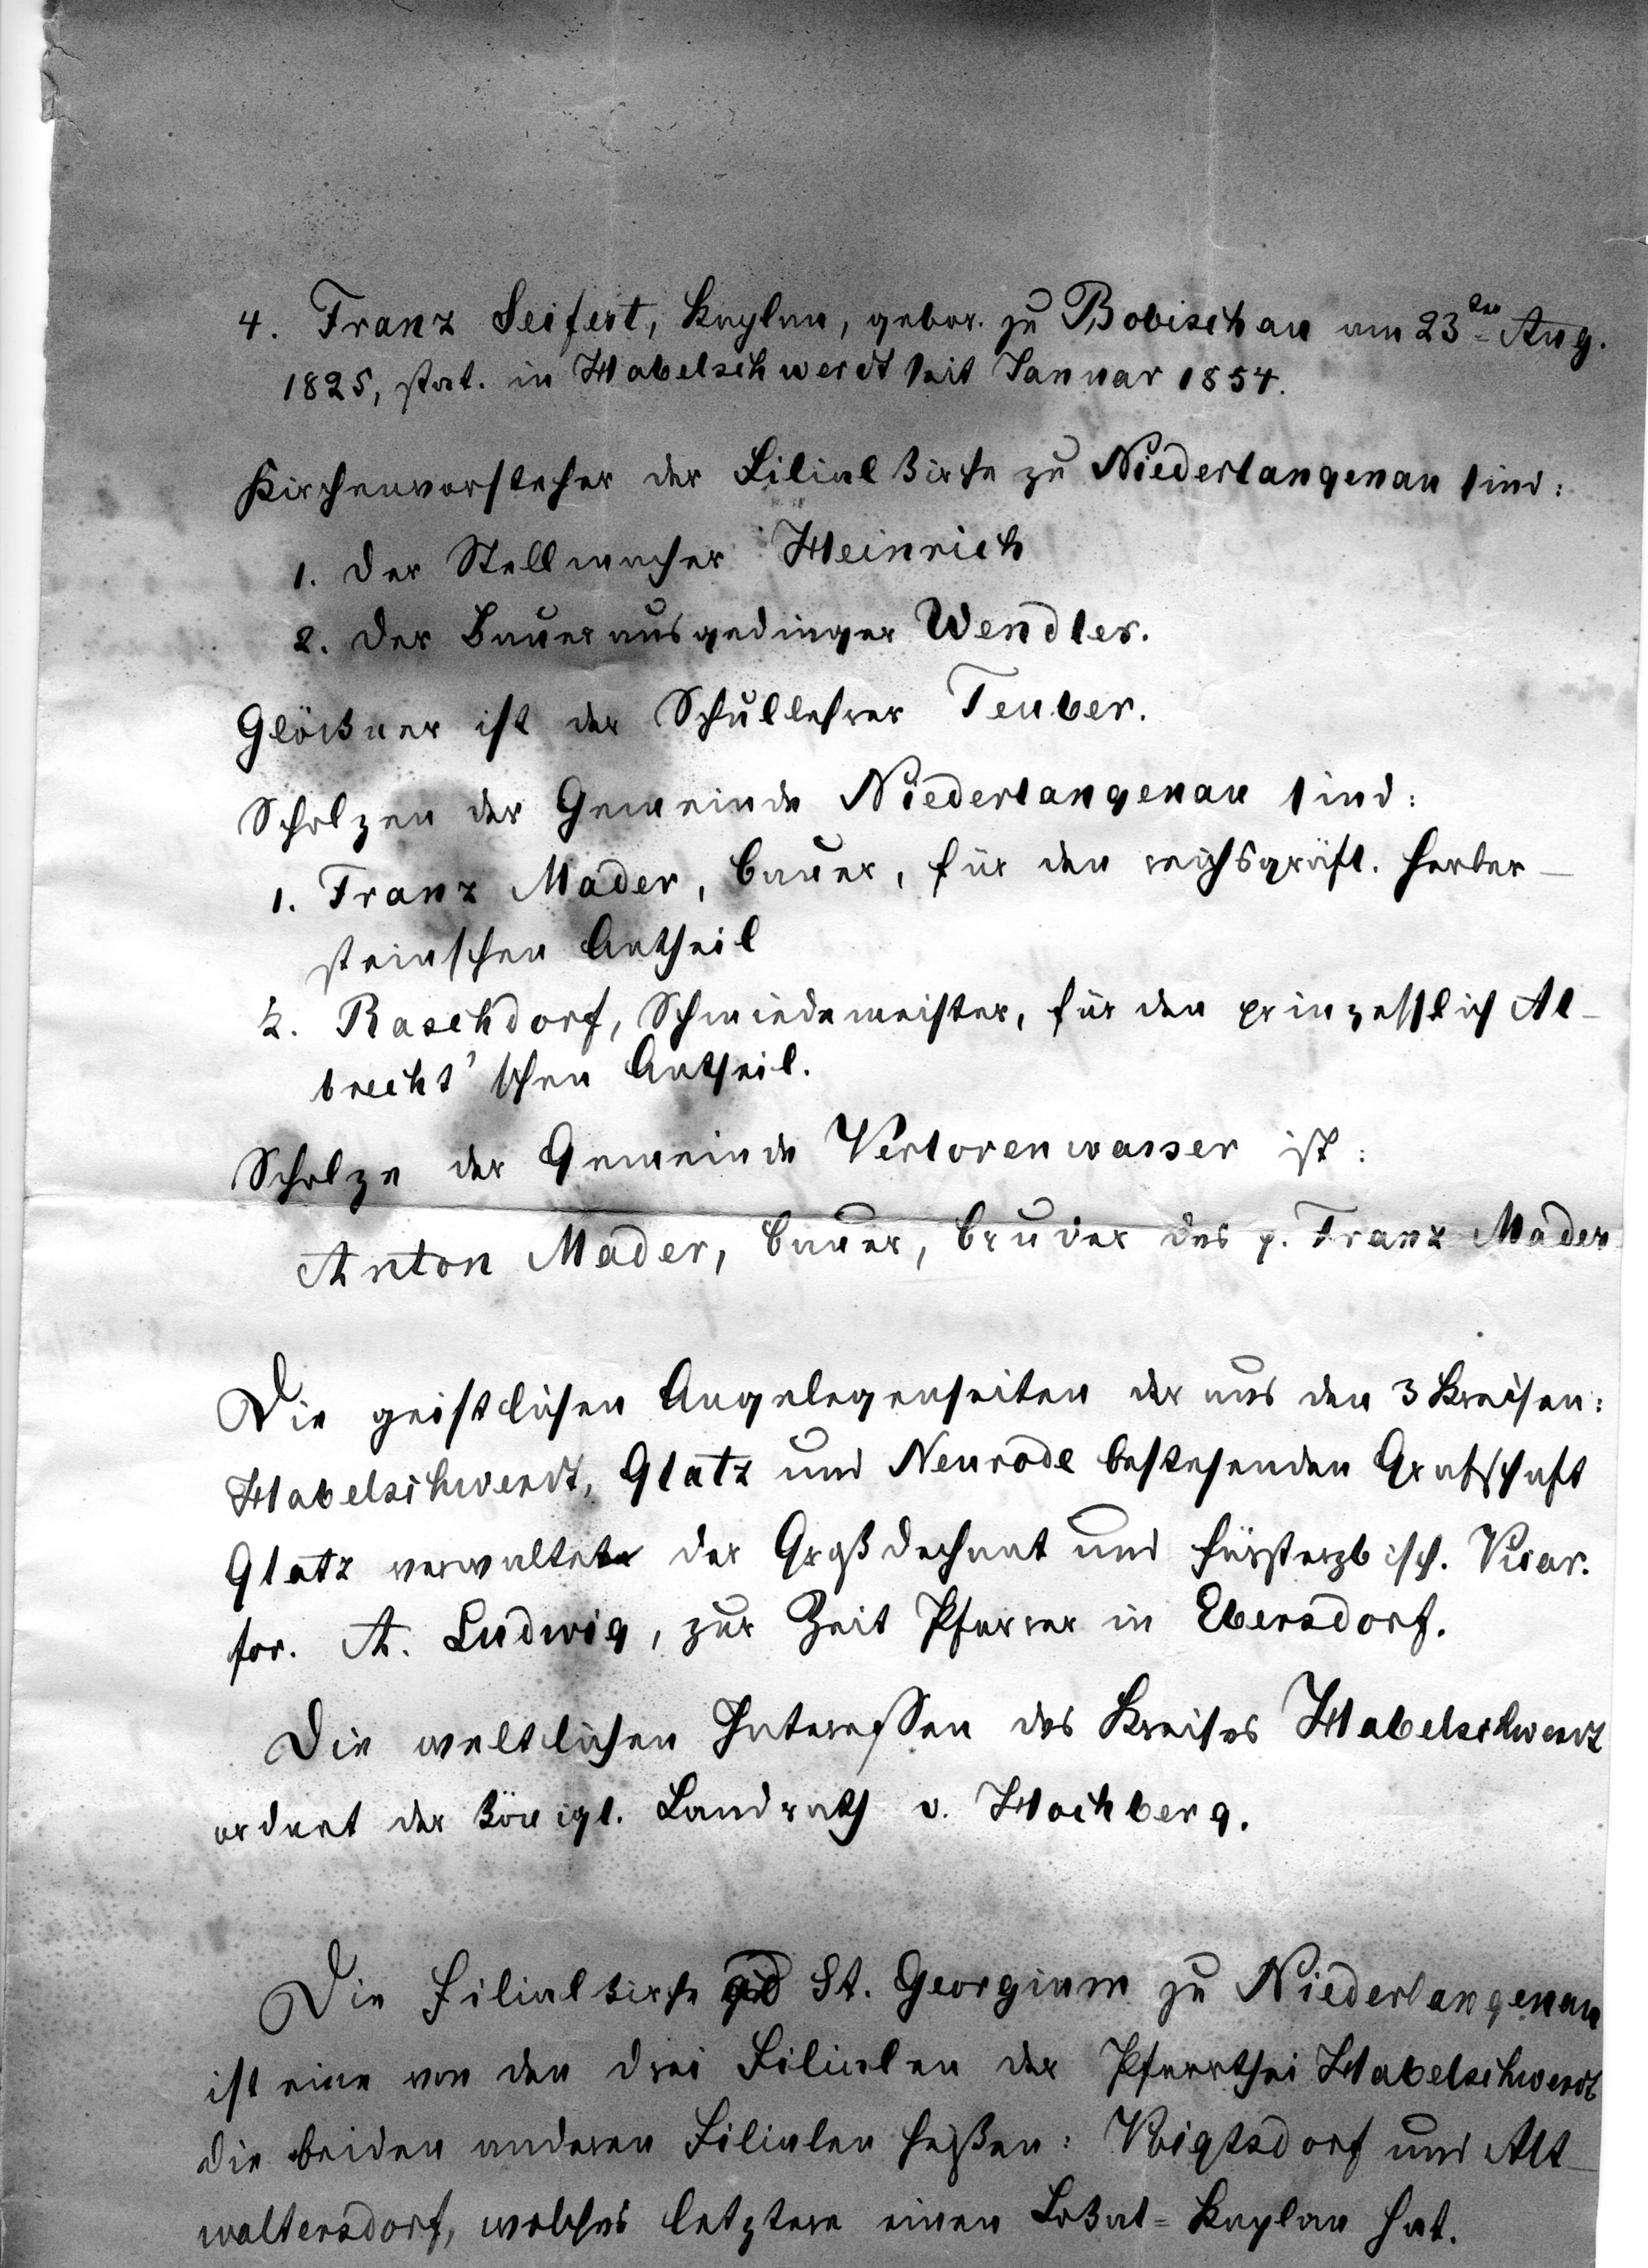 4. Franz Seifert, Kaplan, gebor. zu Bobischau am 23ten Aug.
1825, stat. in Habelschwerdt seit Januar 1854.
Kirchenvorsteher der Filialkirche zu Niederlangenau sind:
1. der Stellmacher Heinrich
2. der Bauerausgedinger Wendler.
Glöckner ist der Schullehrer Teuber.
Scholzen der Gemeinde Niederlangenau sind:
1. Franz Mader, Bauer, für den reichsgräfl. Herber-
steinschen Antheil
2. Raschdorf, Schmiedemeister, für den prinzesslich Al-
brecht'schen Antheil.
Scholze der Gemeinde Verlorenwasser ist:
Anton Mader, Bauer, Bruder des p. Franz Mader
Die geistlichen Angelegenheiten der aus den 3 Kreisen:
Habelschwerdt, Glatz und Neurode bestehenden Grafschaft
Glatz verwaltet der Großdechant und fürsterzbisch. Vicar.
for. A. Ludwig, zur Zeit Pfarrer in Ebersdorf.
Die weltlichen Interessen des Kreises Habelschwerdt
ordnet der königl. Landrath v. Hochberg.
Die Filialkirche ad St. Georgium zu Niederlangenau
ist eine von den drei Filialen der Pfarrthei Habelschwerdt
die beiden anderen Filialen heißen: Voigtsdorf und Alt-
waltersdorf, welches letztere einen Lokat-Kaplan hat.